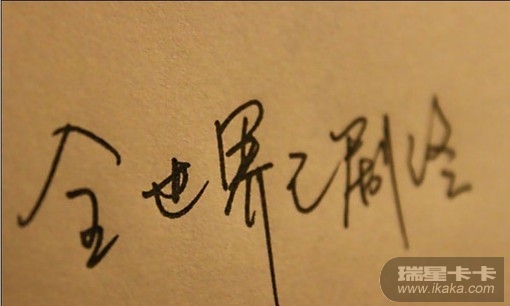 全世界已剧终
瑞星卡卡
www.ikaka.com